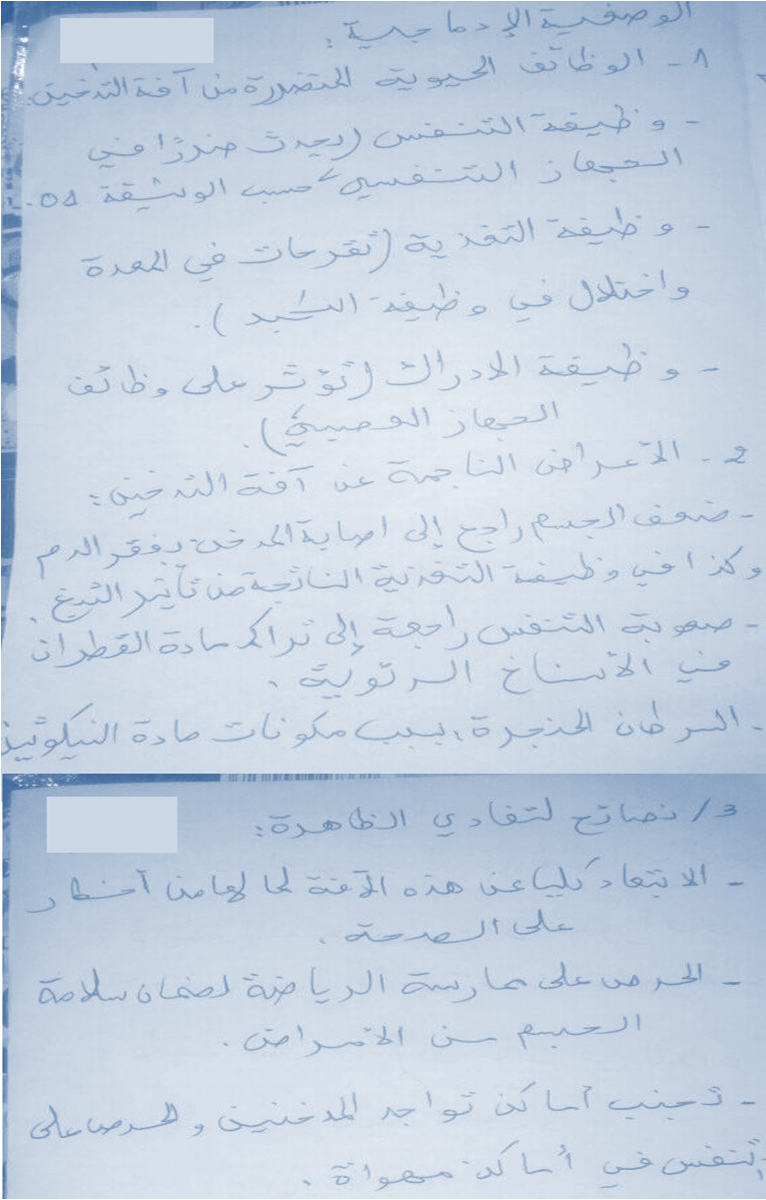 الوضعية الإدماجية :
1 - الوظائف الحيوية المتضررة من آفة التدخين.
- وظيفة التنفس (يحدث ضررًا في
الجهاز التنفسي حسب الوثيقة 01.
- وظيفة التغذية (تقرحات في المعدة
واختلال في وظيفة الكبد ).
- وظيفة الادراك (تؤثر على وظائف
الجهاز العصبي).
2 - الأعراض الناجمة عن آفة التدخين :
- ضعف الجسم راجع إلى اصابة المدخن بفقر الدم
وكذا في وظيفة التغذية الناتجة من تأثير التبغ .
- صعوبة التنفس راجعة إلى تراكم مادة القطران
في الأسناخ الرئوية .
- السرطان الحنجرة : بسبب مكونات مادة النيكوتين
3/ نصائح لتفادي الظاهرة :
- الابتعاد كليا عن هذه الآفة لما لها من أخطار
على الصحة .
- الحرص على ممارسة الرياضة لضمان سلامة
الجسم من الأمراض .
- تجنب أماكن تواجد المدخنين والحرص على
التنفس في أماكن مهواة .